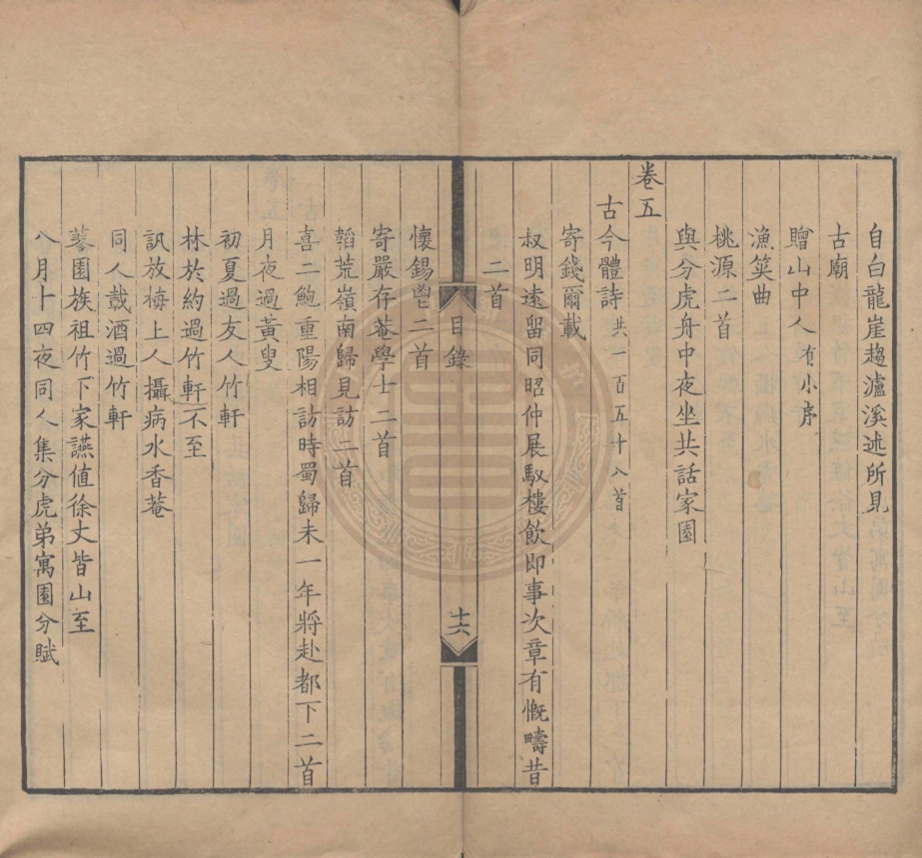 自白龍崖趨瀘溪述所見
古廟
贈山中人有小序
漁筴曲
桃源二首
與分虎舟中夜坐共話家園
卷五
古今體詩共一百五十八首
寄錢爾載
叔明遠留同昭仲展馭樓飲即事次章有慨疇昔
二首
目錄
十六
懷錫鬯二首
寄嚴存菴學士二首
韜荒嶺南歸見訪二首
喜二鮑重陽相訪時蜀歸未一年將赴都下二首
月夜過黃叟
初夏過友人竹軒
林於約過竹軒不至
訊放梅上人攝病水香菴
同人載酒過竹軒
蓼園族祖竹下家讌值徐丈皆山至
八月十四夜同人集分虎弟寓園分賦